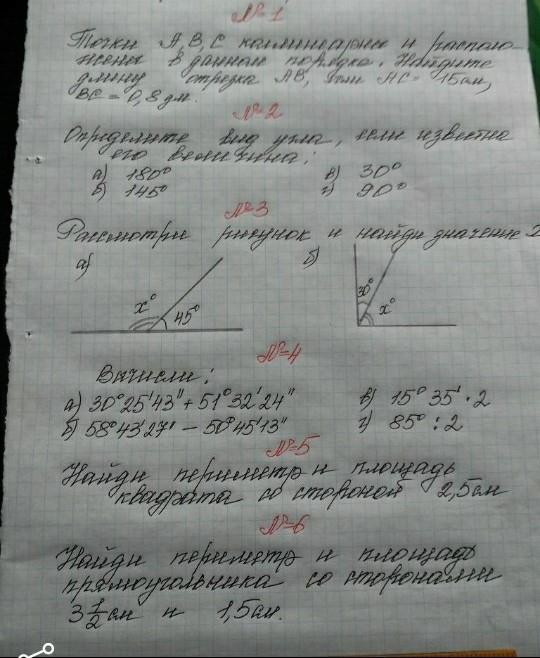 №1
Точки A, B, C коллинеарны и располо-
жены в данном порядке. Найдите
длину отрезка AB, если AC = 15см,
BC = 0,8 дм.
№2
Определите вид угла, если известна
его величина:
а) 180° в) 30°
б) 145° г) 90°
№3
Рассмотри рисунок и найди значение
а) б)
x° 45° 30° x°
№4
Вычисли:
а) 30°25'43" + 51°32'24" в) 15°35' · 2
б) 58°43'27" - 50°45'13" г) 85° : 2
№5
Найди периметр и площадь
квадрата со стороной 2,5см
№6
Найди периметр и площадь
прямоугольника со сторонами
3 1/2 см и 1,5см.